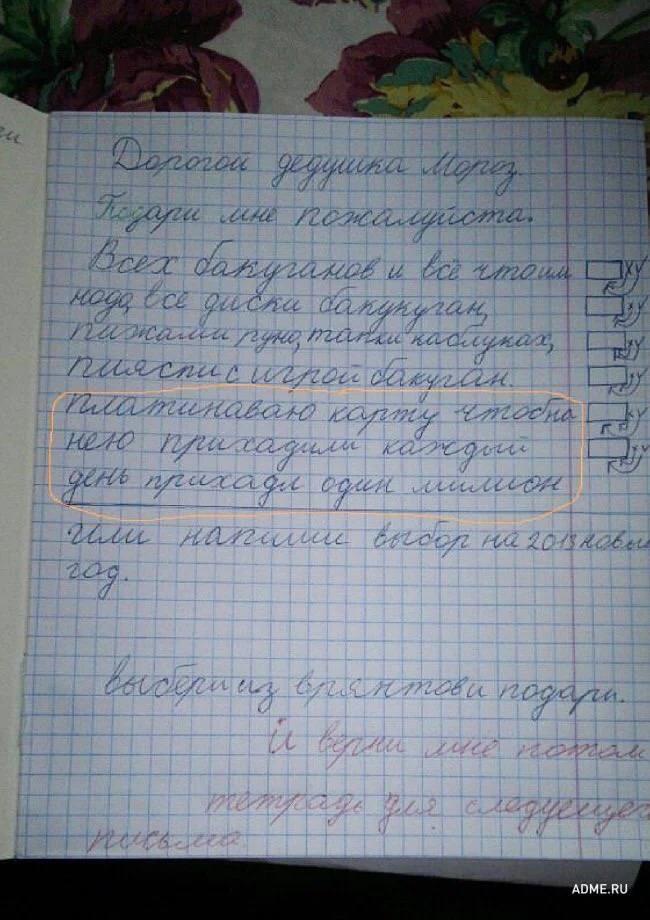 Дорогой дедушка Мороз.
Подари мне пожалуйста.
Всех бакуганов и всё что им
нода, все диски бакукуган,
пижами, руно, тапки наблуках,
пияспи с игрой бакуган.
платинаваю карту чтобна
нею прихадили каждый
день прихадл один милион
или напиши выбор на 2013 новый
год.
выбери из врянтови подари.
И верни мне потом
тетрадь для следуещего
письма
ADME.RU